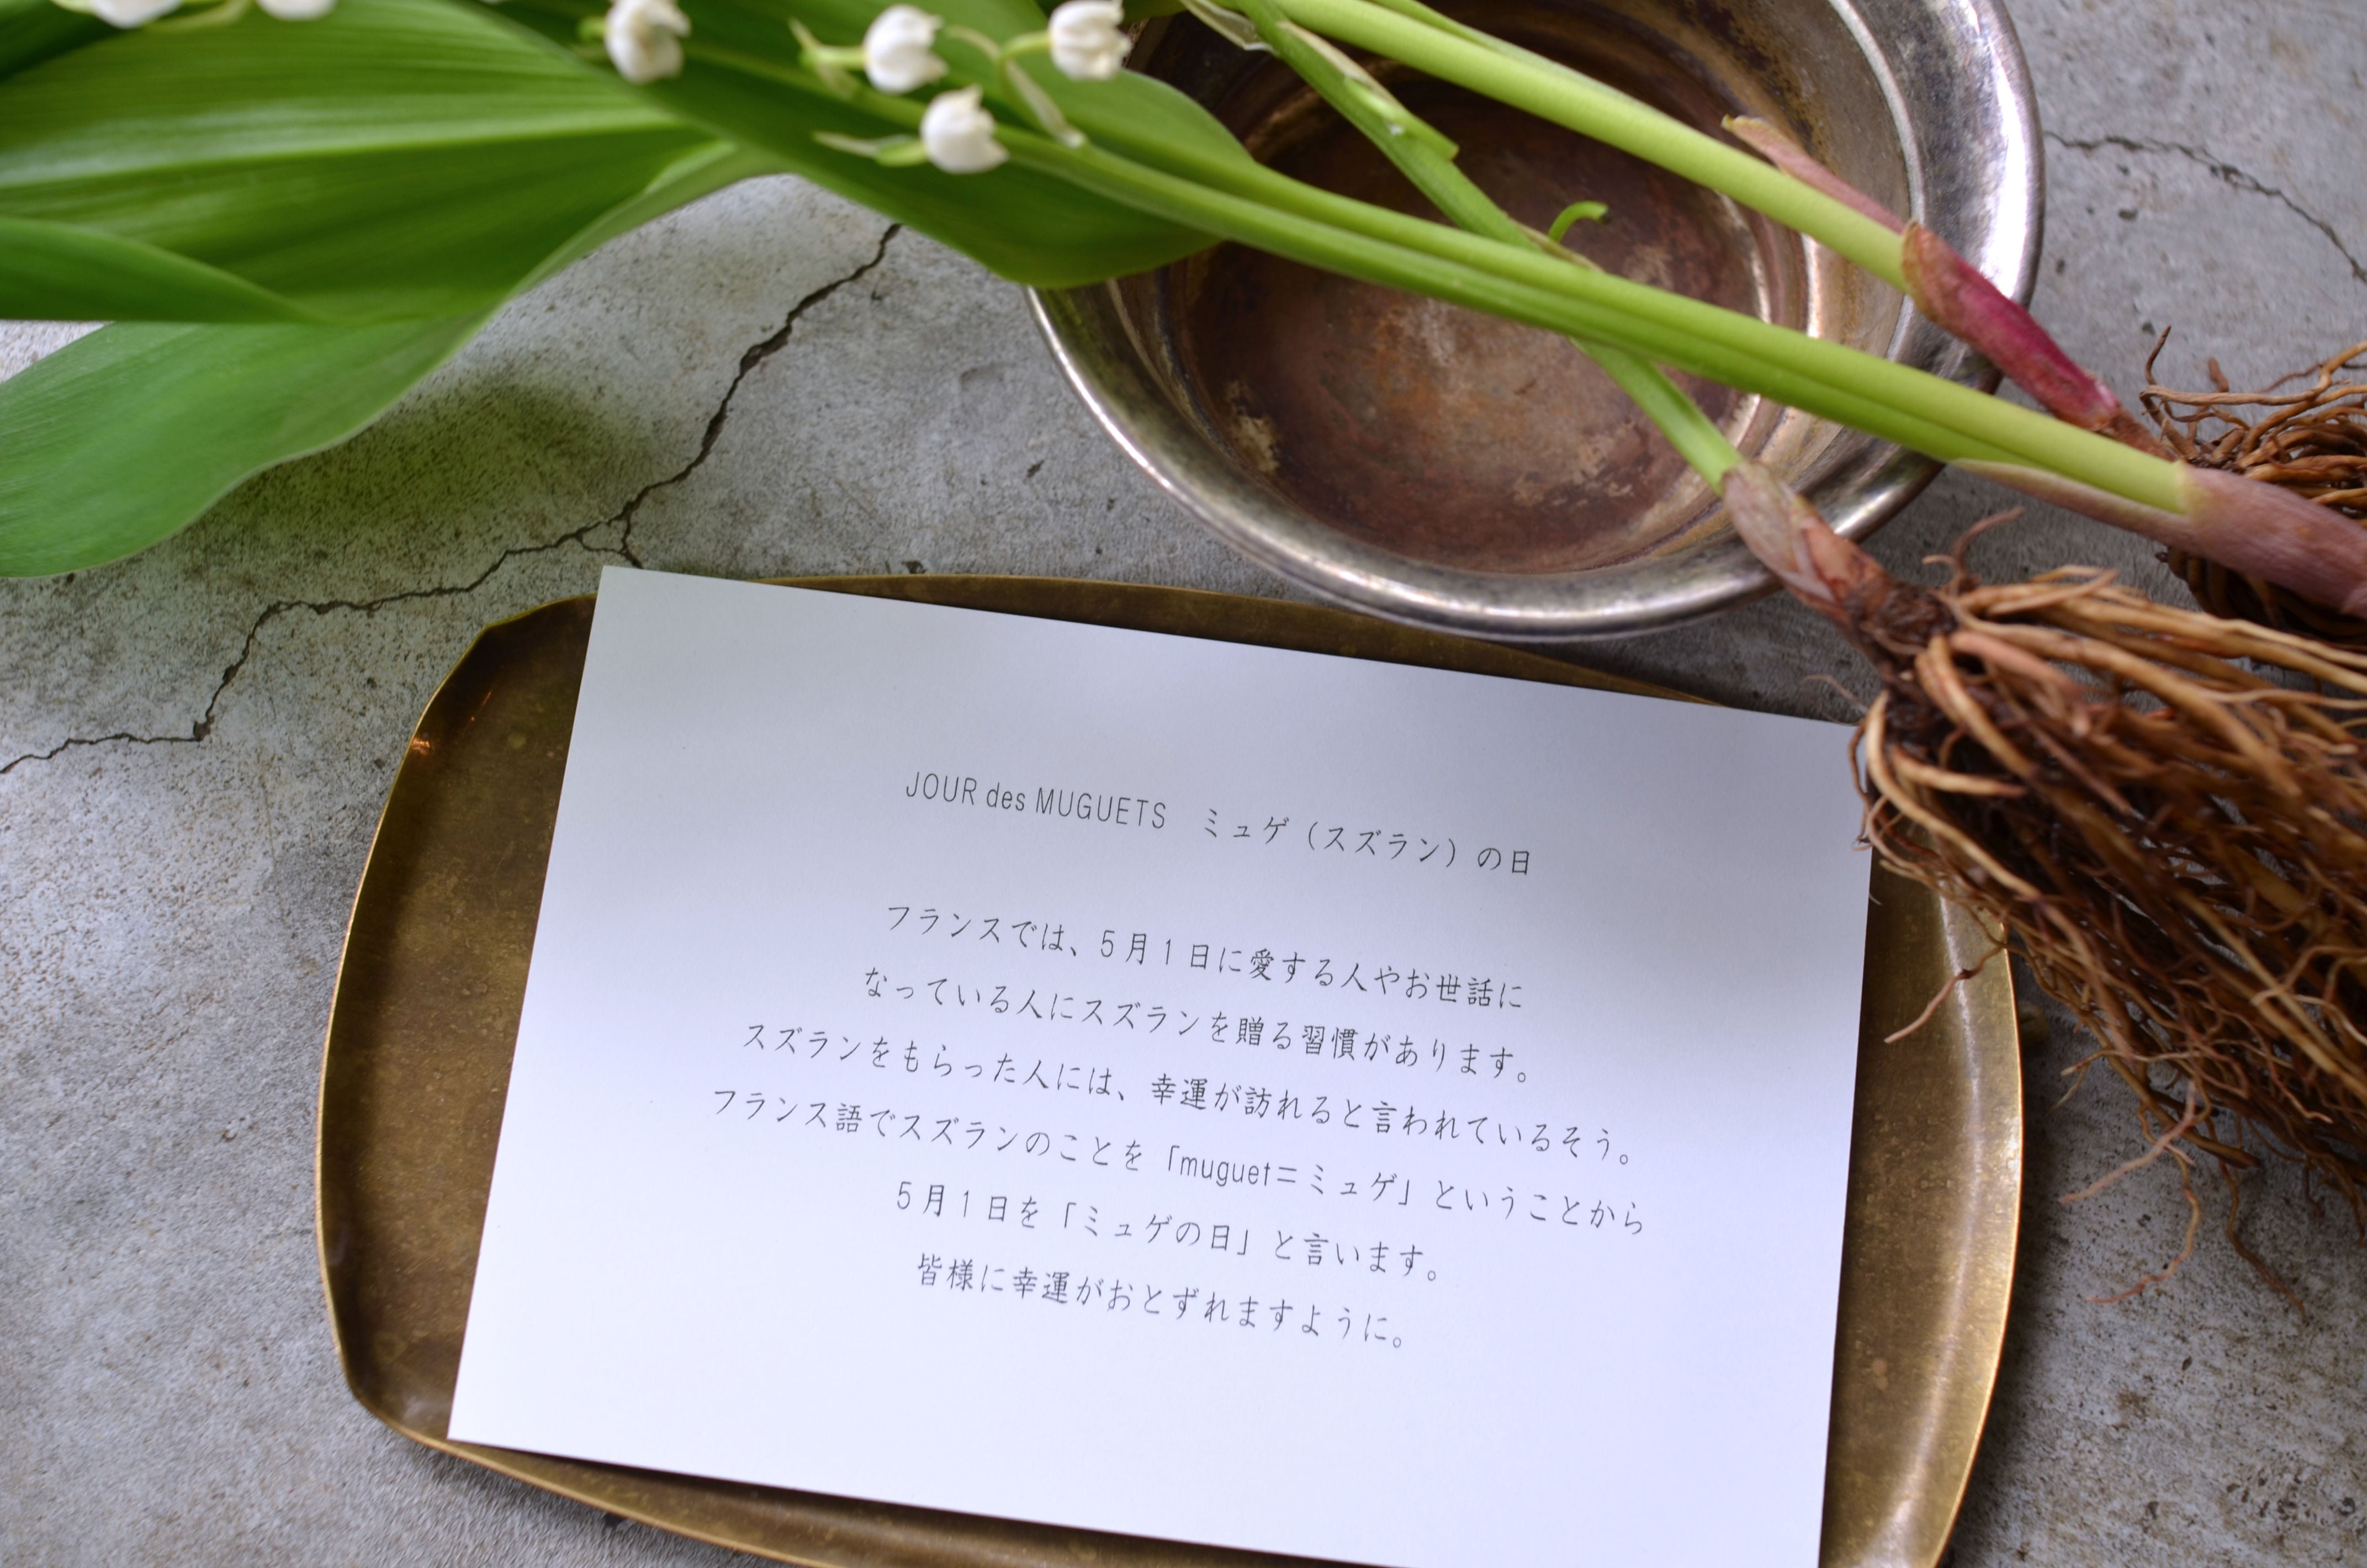 JOUR des MUGUETS　ミュゲ（スズラン）の日
フランスでは、５月１日に愛する人やお世話に
なっている人にスズランを贈る習慣があります。
スズランをもらった人には、幸運が訪れると言われているそう。
フランス語でスズランのことを「muguet＝ミュゲ」ということから
５月１日を「ミュゲの日」と言います。
皆様に幸運がおとずれますように。